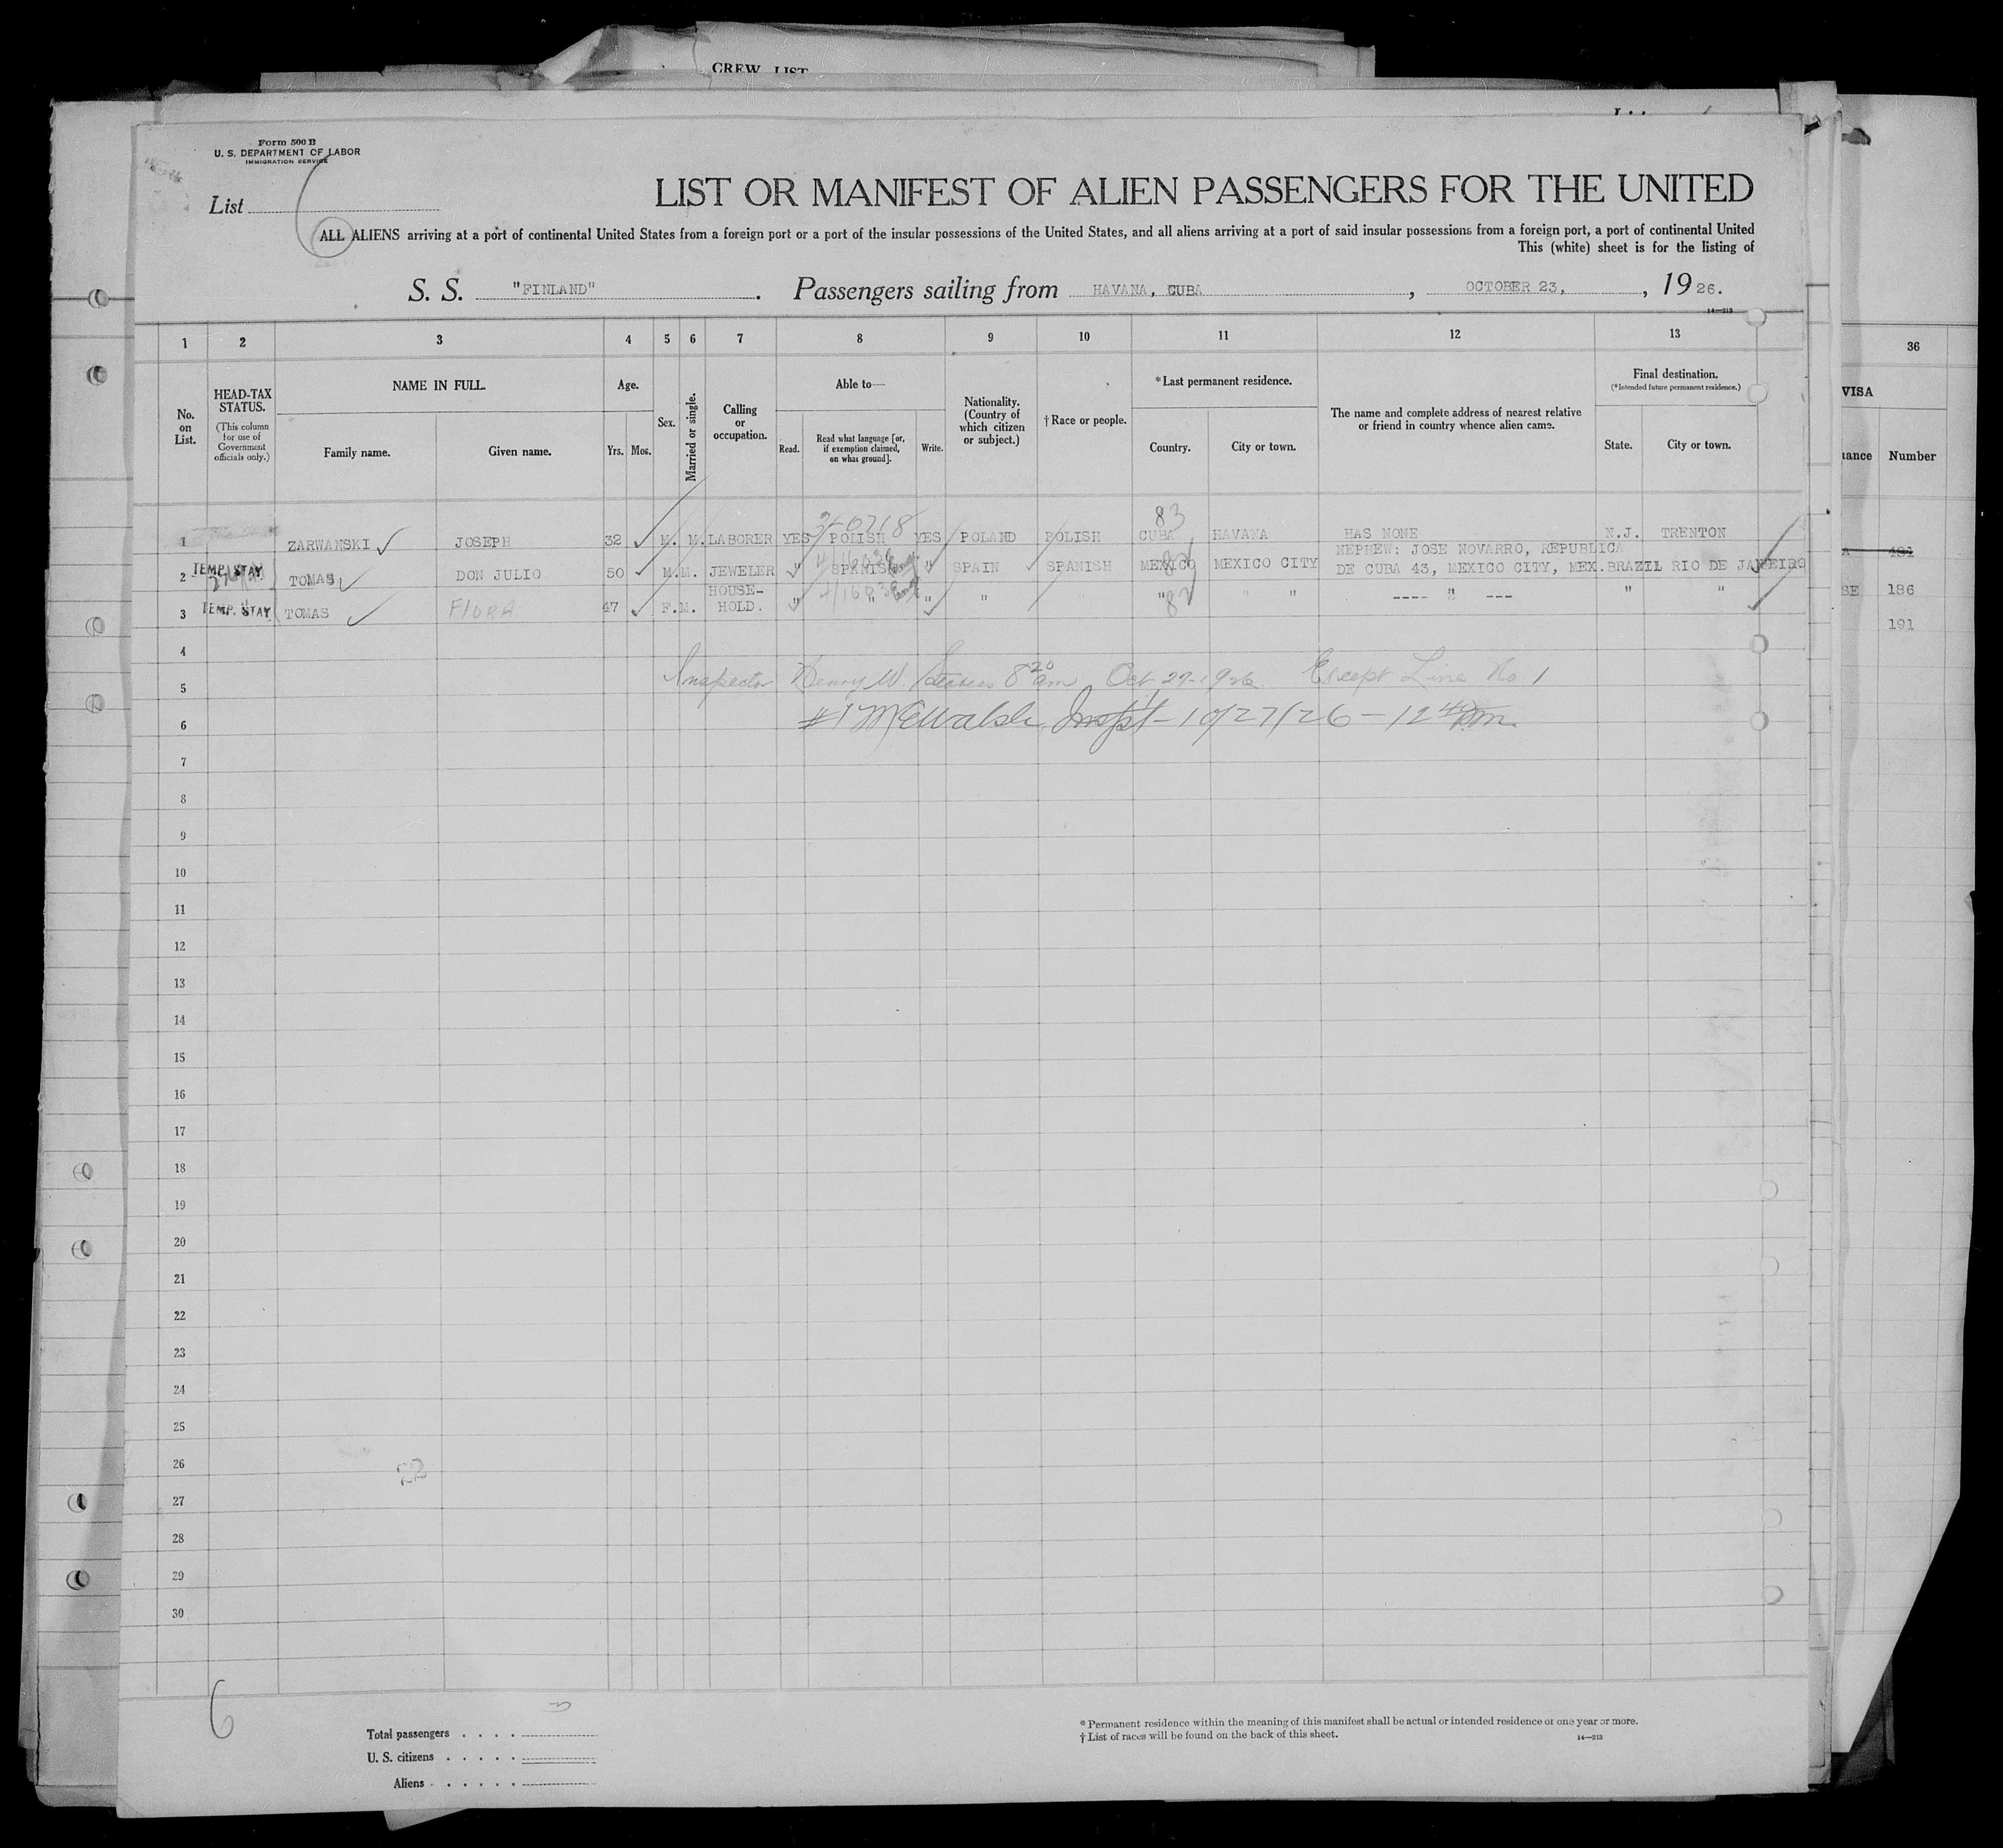 CREW LIST
Form 500 B
U. S. DEPARTMENT OF LABOR
IMMIGRATION SERVICE
List
LIST OR MANIFEST OF ALIEN PASSENGERS FOR THE UNITED
ALL ALIENS arriving at a port of continental United States from a foreign port or a port of the insular possessions of the United States, and all aliens arriving at a port of said insular possessions from a foreign port, a port of continental United
This (white) sheet is for the listing of
S. S. "FINLAND". Passengers sailing from HAVANA, CUBA, OCTOBER 23, , 1926.
14—213
1 2 3 4 5 6 7 8 9 10 11 12 13 36
No. on List.
HEAD-TAX STATUS.
(This column for use of Government officials only.)
NAME IN FULL.
Family name. Given name.
Age.
Yrs. Mos.
Sex.
Married or single.
Calling or occupation.
Able to—
Read. Read what language [or, if exemption claimed, on what ground]. Write.
Nationality. (Country of which citizen or subject.)
† Race or people.
*Last permanent residence.
Country. City or town.
The name and complete address of nearest relative or friend in country whence alien came.
Final destination.
(*Intended future permanent residence.)
State. City or town.
VISA
Number
83
1 ZARWANSKI JOSEPH 32 M. M. LABORER YES POLISH YES POLAND POLISH CUBA HAVANA HAS NONE N.J. TRENTON
NEPHEW: JOSE NOVARRO, REPUBLICA
2 TEMP. STAY TOMAS DON JULIO 50 M. M. JEWELER " SPANISH " SPAIN SPANISH MEXICO MEXICO CITY DE CUBA 43, MEXICO CITY, MEX. BRAZIL RIO DE JANEIRO
3 TEMP. STAY TOMAS FLORA 47 F. M. HOUSE-HOLD. " " " " " " " ---- " --- " "
186
191
4
5 Inspector Henry W. 8 20 am Oct 27-1926 Except Line No 1
6 #1 McWalsh Inspt - 10/27/26 - 12 40 pm
7
8
9
10
11
12
13
14
15
16
17
18
19
20
21
22
23
24
25
26
27
28
29
30
6
Total passengers . . . .
U. S. citizens . . . . .
Aliens . . . . . .
* Permanent residence within the meaning of this manifest shall be actual or intended residence of one year or more.
† List of races will be found on the back of this sheet.
14—213